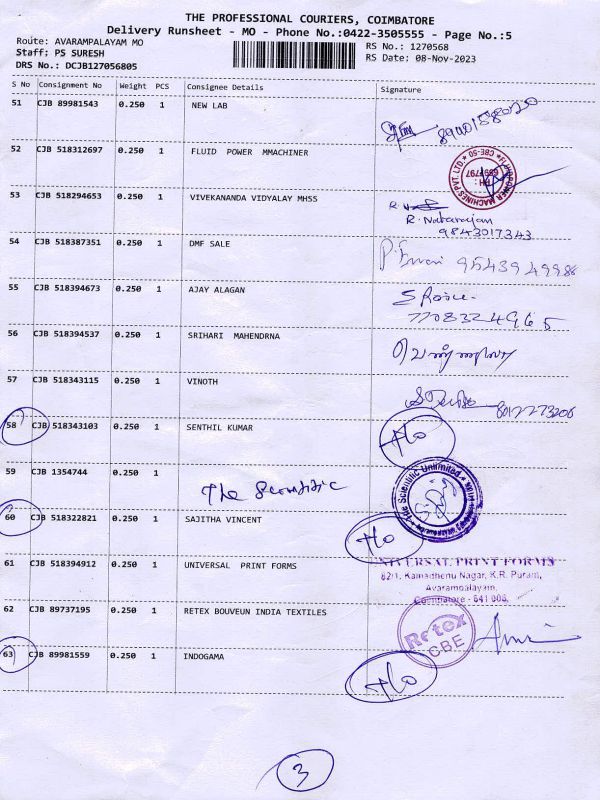 THE PROFESSIONAL COURIERS, COIMBATORE
Delivery Runsheet - MO - Phone No.:0422-3505555 - Page No.:5
Route: AVARAMPALAYAM MO RS No.: 1270568
Staff: PS SURESH RS Date: 08-Nov-2023
DRS No.: DCJB127056805
S No Consignment No Weight PCS Consignee Details Signature
51 CJB 89981543 0.250 1 NEW LAB
52 CJB 518312697 0.250 1 FLUID POWER MMACHINER
53 CJB 518294653 0.250 1 VIVEKANANDA VIDYALAY MHSS
R. Natarajan
9843017343
54 CJB 518387351 0.250 1 DMF SALE
55 CJB 518394673 0.250 1 AJAY ALAGAN
7708324965
56 CJB 518394537 0.250 1 SRIHARI MAHENDRNA
57 CJB 518343115 0.250 1 VINOTH
8012273206
58 CJB 518343103 0.250 1 SENTHIL KUMAR
59 CJB 1354744 0.250 1
The Scientific
The Scientific Unlimited
60 CJB 518322821 0.250 1 SAJITHA VINCENT
61 CJB 518394912 0.250 1 UNIVERSAL PRINT FORMS
UNIVERSAL PRINT FORMS
82/1, Kamadhenu Nagar, K.R. Puram,
Avarampalayam,
Coimbatore - 641 006.
62 CJB 89737195 0.250 1 RETEX BOUVEUN INDIA TEXTILES
Retex
CBE
63 CJB 89981559 0.250 1 INDOGAMA
3